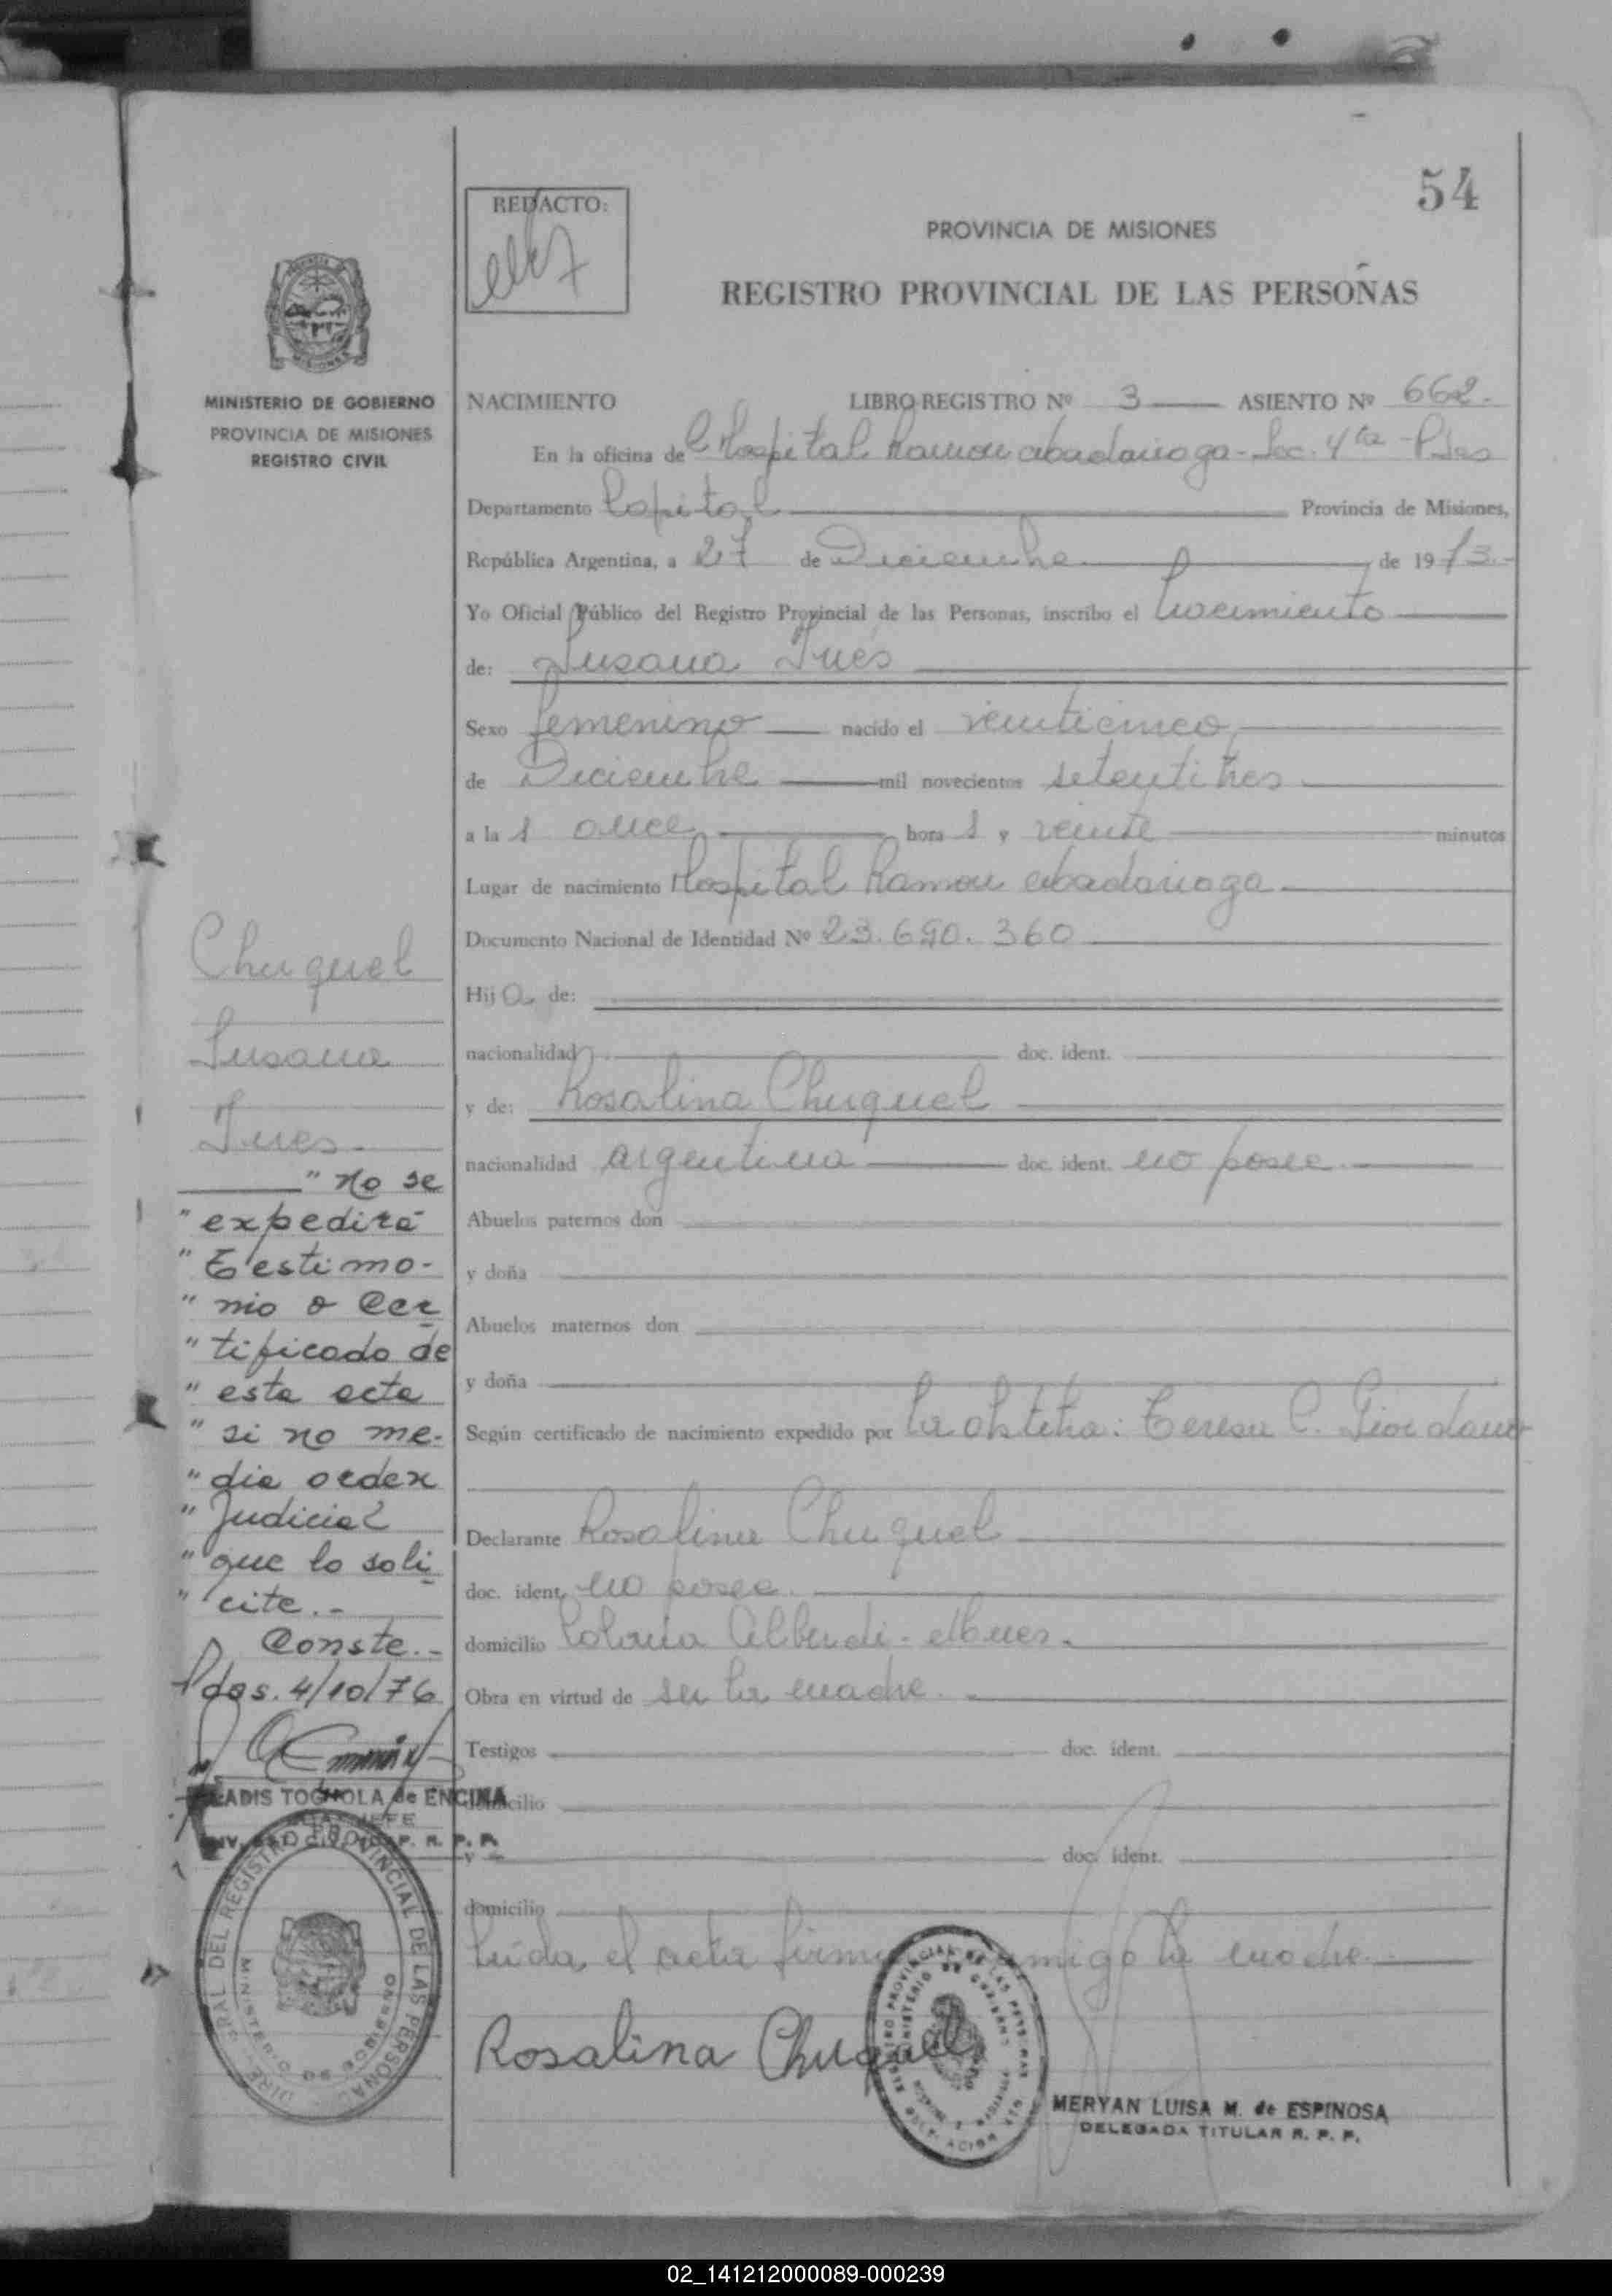 54
REDACTO:
PROVINCIA DE MISIONES
REGISTRO PROVINCIAL DE LAS PERSONAS
MINISTERIO DE GOBIERNO
PROVINCIA DE MISIONES
REGISTRO CIVIL
NACIMIENTO LIBRO REGISTRO Nº 3 ASIENTO Nº 662.
En la oficina de Hospital Ramon abadariaga - Sec. 4ta - Pdas
Departamento Capital Provincia de Misiones,
República Argentina, a 27 de Diciembre de 1973.-
Yo Oficial Público del Registro Provincial de las Personas, inscribo el nacimiento
de: Susana Inés
Sexo femenino nacido el veinticinco
de Diciembre mil novecientos setentitres
a la s once hora s y veinte minutos
Lugar de nacimiento Hospital Ramon abadariaga
Documento Nacional de Identidad Nº 23.690.360
Hij a de:
nacionalidad doc. ident.
y de: Rosalina Chuquel
nacionalidad argentina doc. ident. no posee
Abuelos paternos don
y doña
Abuelos maternos don
y doña
Según certificado de nacimiento expedido por la obstetra: Teresa C. Giordano
Declarante Rosalina Chuquel
doc. ident. no posee.
domicilio Colonia Alberdi -
Obra en virtud de ser la madre.
Testigos doc. ident.
domicilio
y doc. ident.
domicilio
Leída el acta firma conmigo la madre.
Rosalina Chuquel
MERYAN LUISA M. de ESPINOSA
DELEGADA TITULAR R. P. P.
Chuquel
Susana
Ines.
" No se
" expedirá
" Testimo-
" nio o Cer
" tificado de
" esta acta
" si no me-
" dia orden
" Judicial
" que lo soli
" cite.-
Conste.-
Pdas. 4/10/76
GLADIS TOGNOLA de ENCINA
JEFE
DIV. EST. CIVIL R. P. P.
DIRE GRAL DEL REGISTRO PROVINCIAL DE LAS PERSONAS
MINISTERIO DE GOBIERNO
02_141212000089-000239